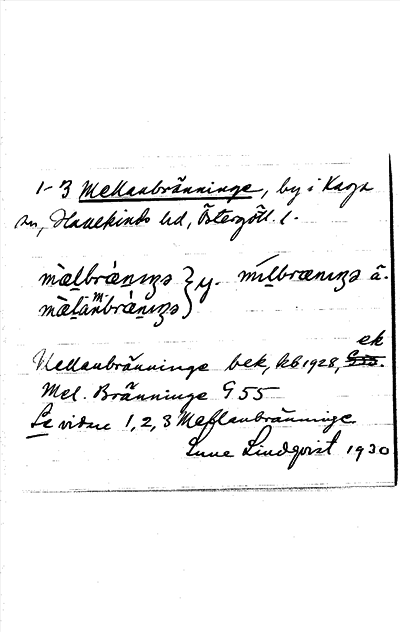 1-3 Mellanbränninge, by i Kaga
sn, Hanekinds hd, Östergötl. l.
mæ̀lbræ̀nɪŋə } y. mìlbrænɪŋə ä.
mæ̀lànbræ̀nɪŋə
m
ek
Mellanbränninge bek, kb 1928, G55.
Mel. Bränninge G 55
Se vidare 1, 2, 3 Meflanbränninge
Sune Lindqvist 1930